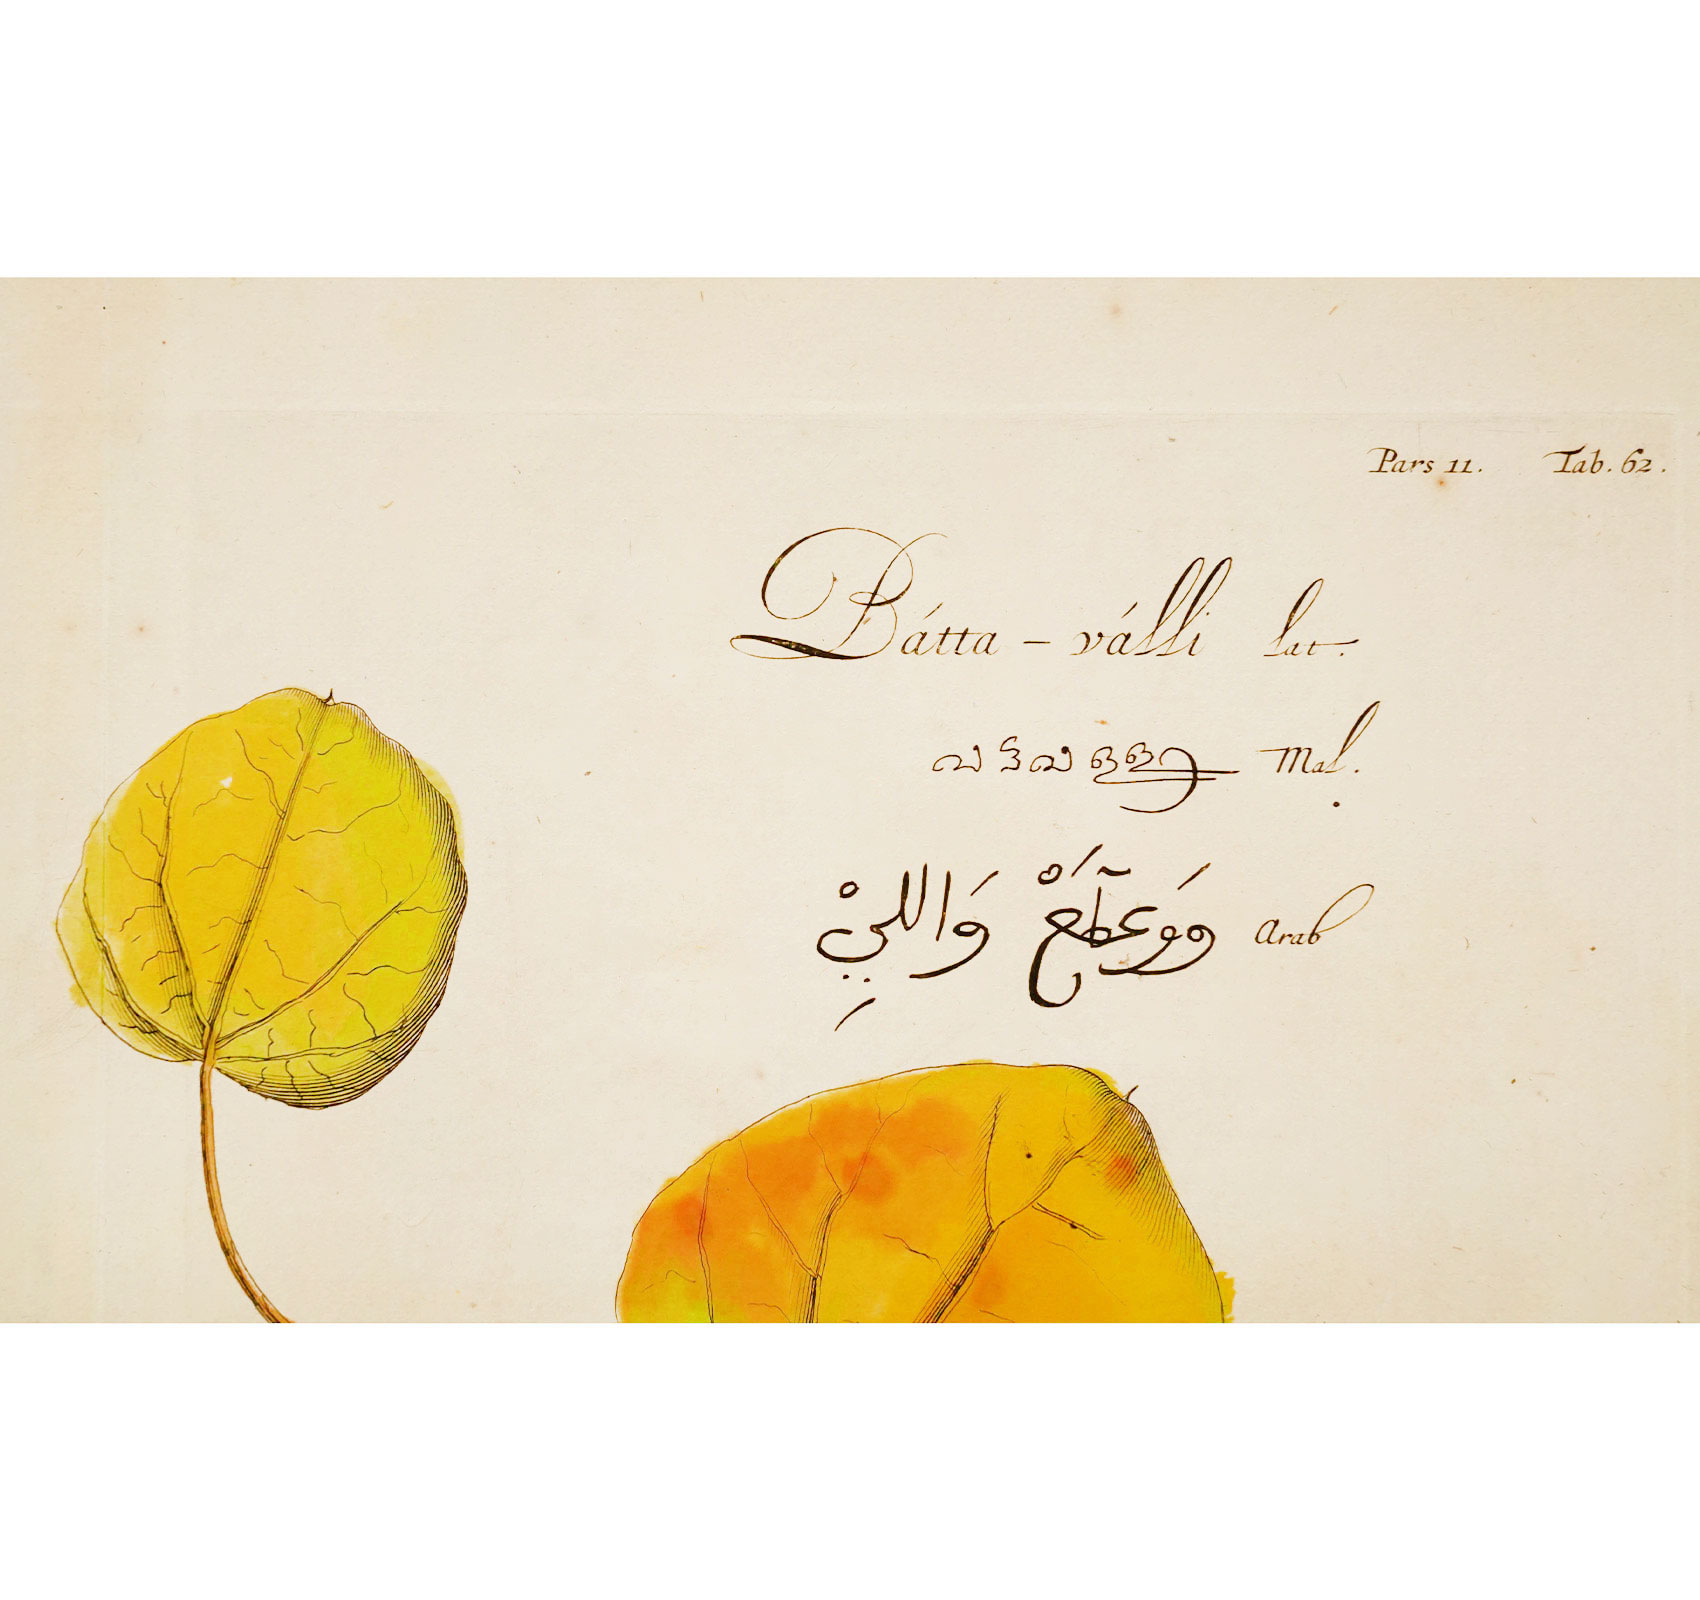 Pars 11. Tab. 62.
Bátta - válli lat.
വട്ടവള്ളി Mal.
وَاللِيْ Arab